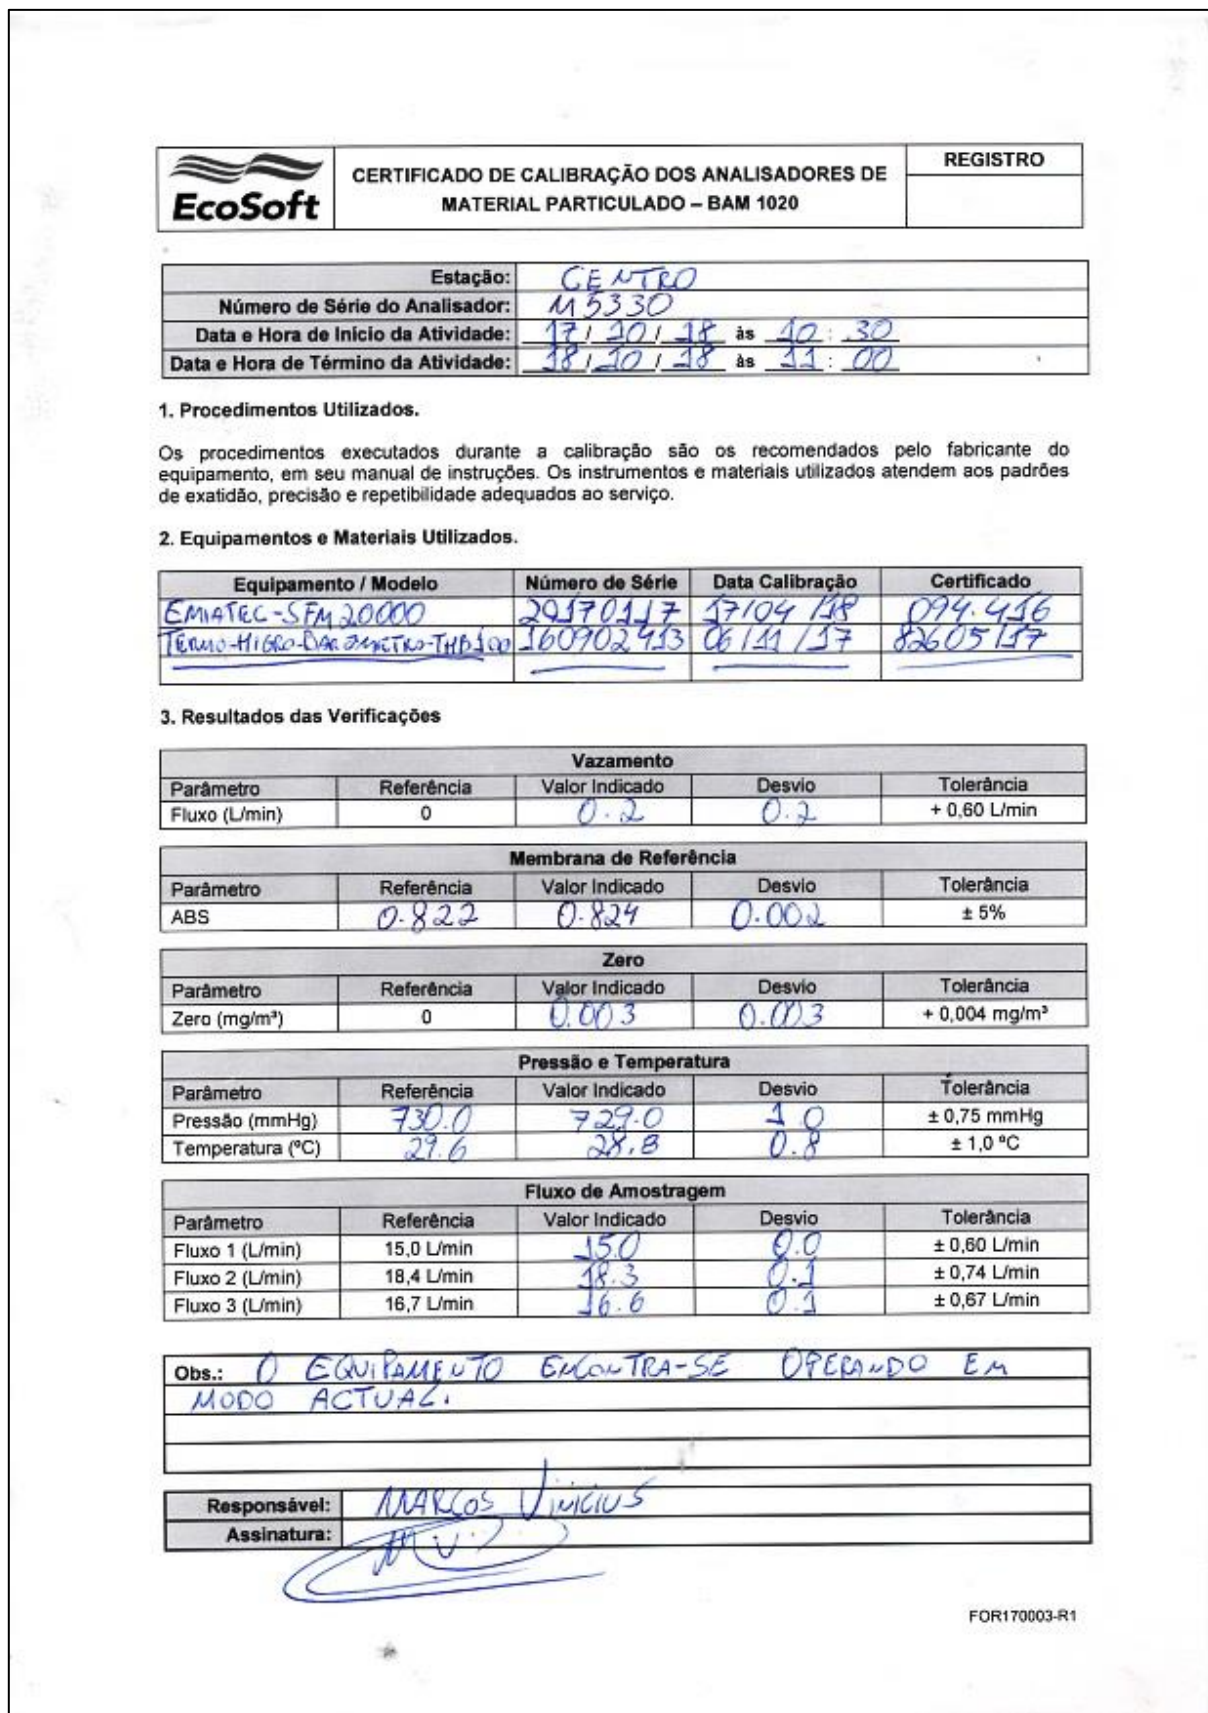 EcoSoft
CERTIFICADO DE CALIBRAÇÃO DOS ANALISADORES DE
MATERIAL PARTICULADO – BAM 1020
REGISTRO
Estação: CENTRO
Número de Série do Analisador: M5330
Data e Hora de Início da Atividade: 17/10/18 às 10:30
Data e Hora de Término da Atividade: 18/10/18 às 11:00
1. Procedimentos Utilizados.
Os procedimentos executados durante a calibração são os recomendados pelo fabricante do
equipamento, em seu manual de instruções. Os instrumentos e materiais utilizados atendem aos padrões
de exatidão, precisão e repetibilidade adequados ao serviço.
2. Equipamentos e Materiais Utilizados.
Equipamento / Modelo Número de Série Data Calibração Certificado
EMIATEC-SFM20000 20170117 17/04/18 094.416
TERMO-HIGRO-BAROMETRO-THB100 160902413 06/11/17 82605/17
3. Resultados das Verificações
Vazamento
Parâmetro Referência Valor Indicado Desvio Tolerância
Fluxo (L/min) 0 0.2 0.2 + 0,60 L/min
Membrana de Referência
Parâmetro Referência Valor Indicado Desvio Tolerância
ABS 0.822 0.824 0.002 ± 5%
Zero
Parâmetro Referência Valor Indicado Desvio Tolerância
Zero (mg/m³) 0 0.003 0.003 + 0,004 mg/m³
Pressão e Temperatura
Parâmetro Referência Valor Indicado Desvio Tolerância
Pressão (mmHg) 730.0 729.0 1.0 ± 0,75 mmHg
Temperatura (ºC) 29.6 28.8 0.8 ± 1,0 ºC
Fluxo de Amostragem
Parâmetro Referência Valor Indicado Desvio Tolerância
Fluxo 1 (L/min) 15,0 L/min 15.0 0.0 ± 0,60 L/min
Fluxo 2 (L/min) 18,4 L/min 18.3 0.1 ± 0,74 L/min
Fluxo 3 (L/min) 16,7 L/min 16.6 0.1 ± 0,67 L/min
Obs.: O EQUIPAMENTO ENCONTRA-SE OPERANDO EM
MODO ACTUAL.
Responsável: MARCOS VINICIUS
Assinatura:
FOR170003-R1